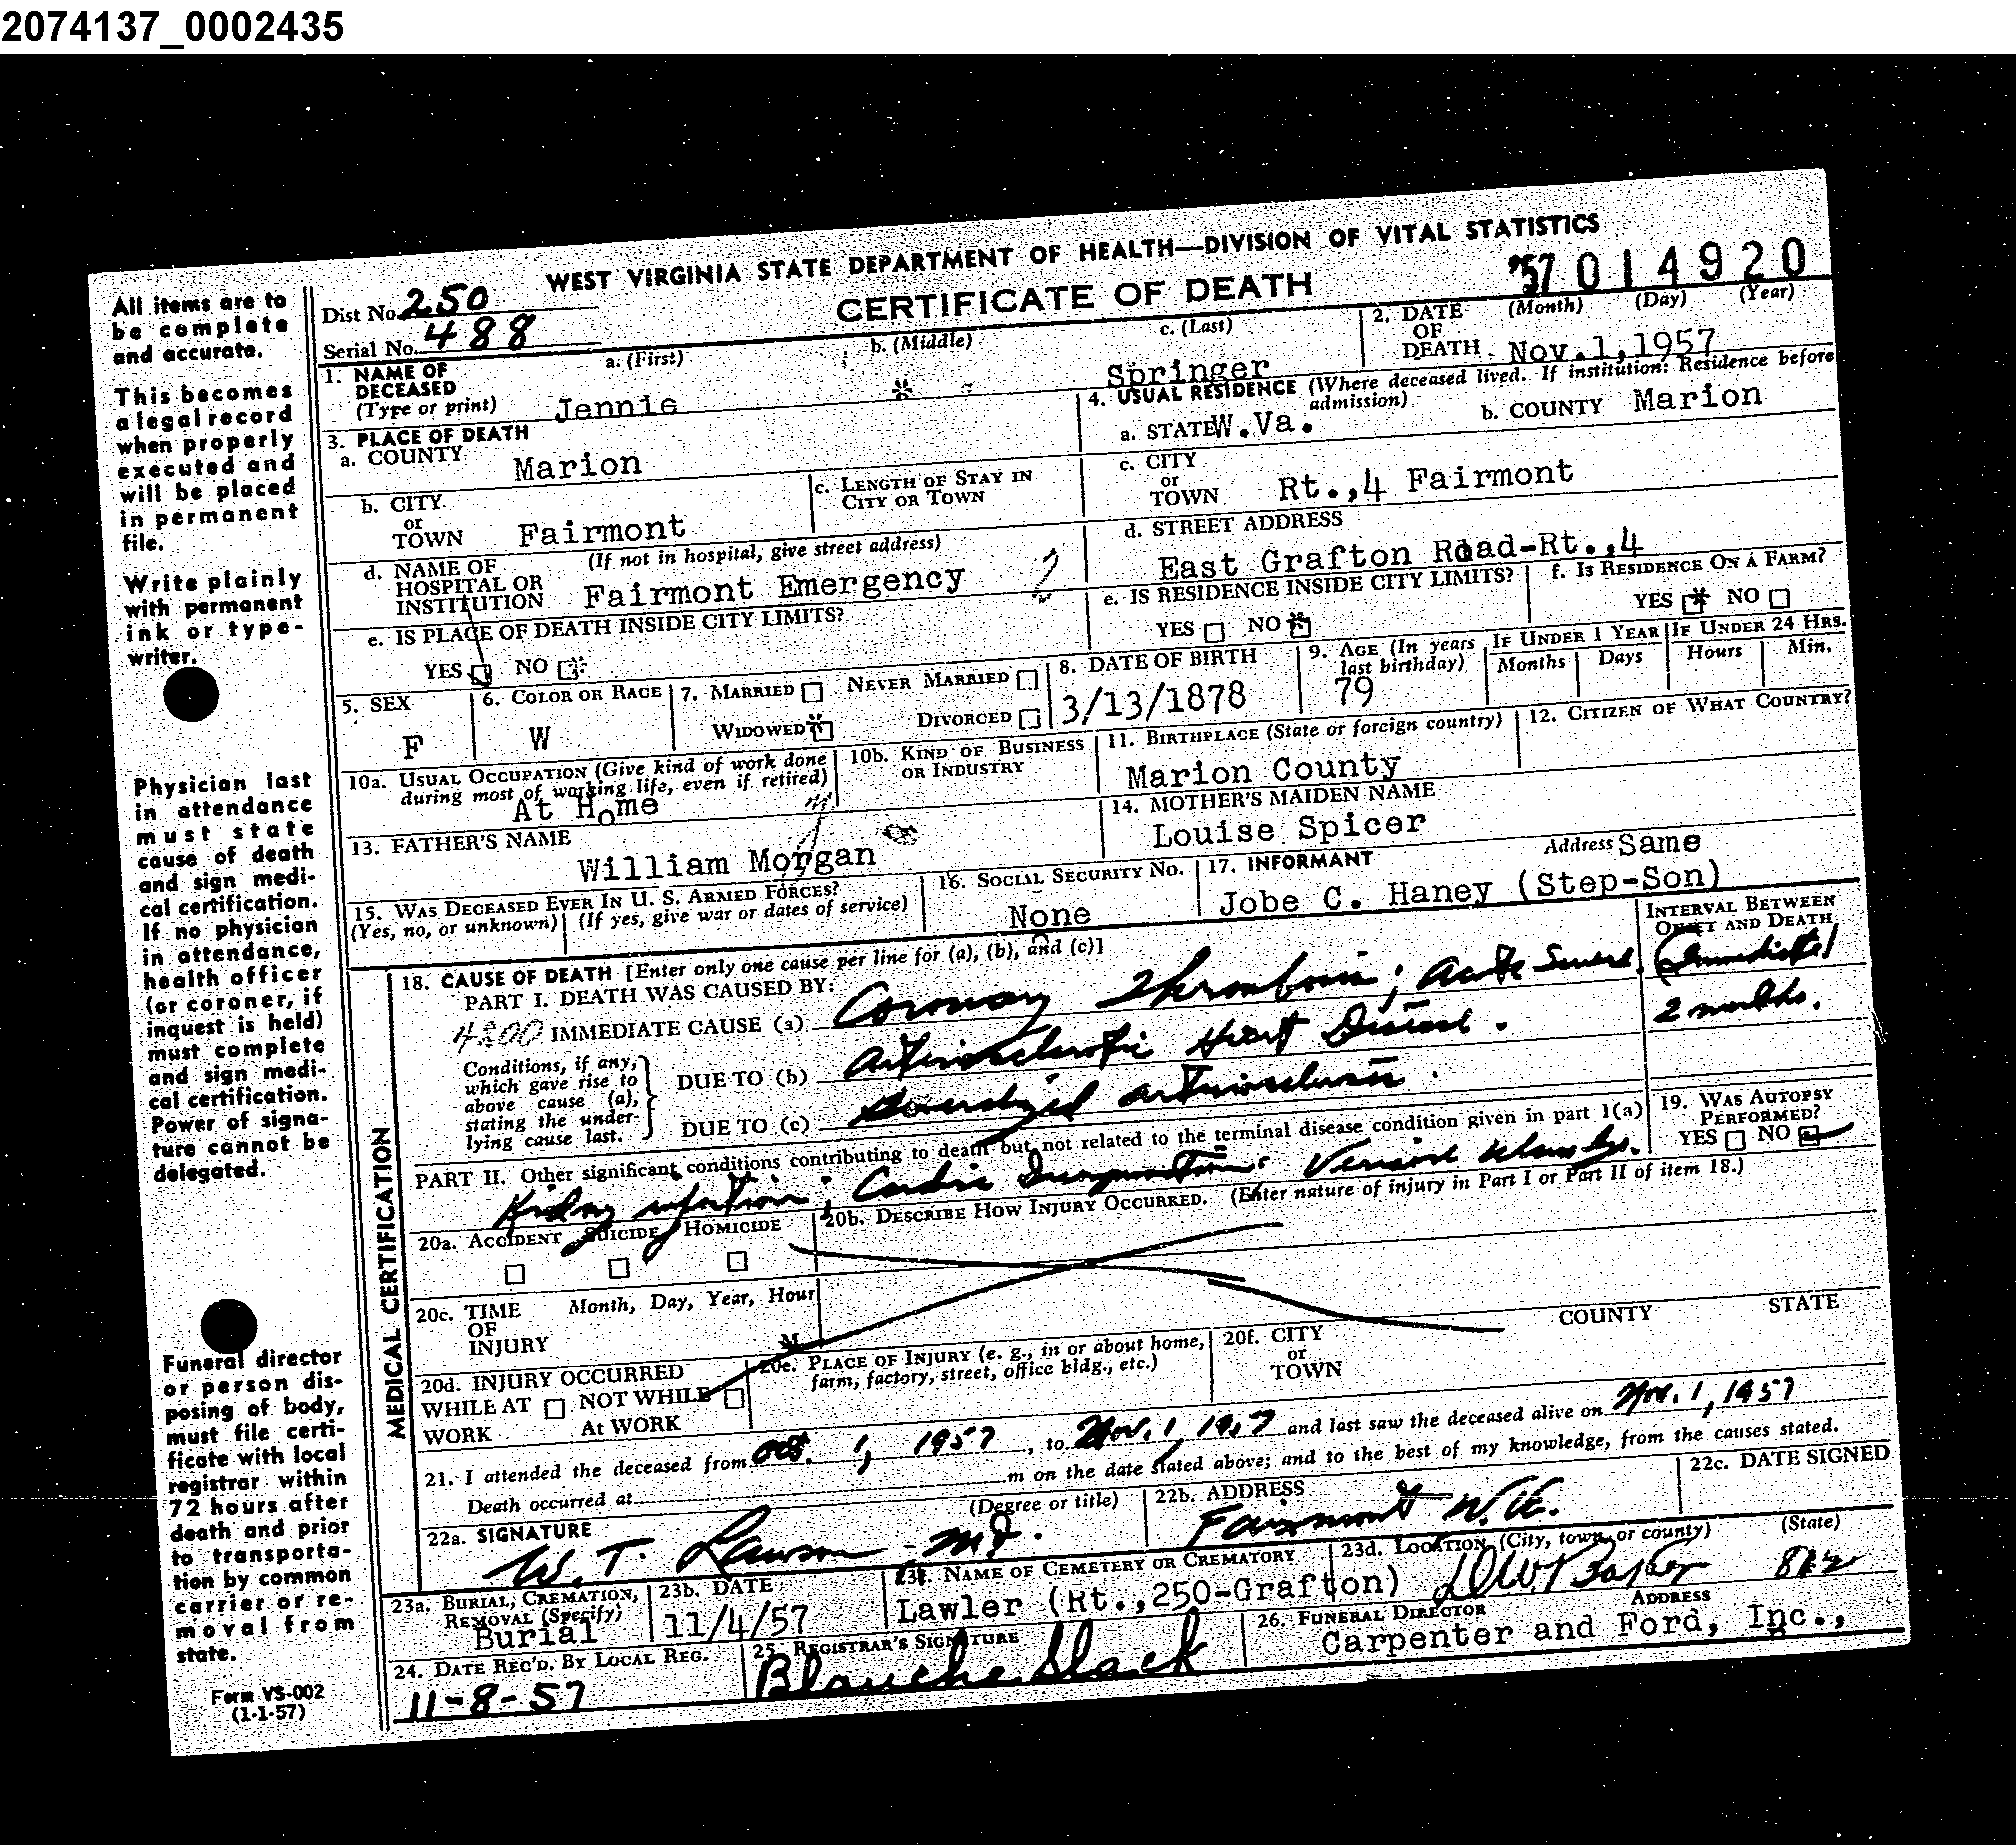 2074137_0002435
WEST VIRGINIA STATE DEPARTMENT OF HEALTH—DIVISION OF VITAL STATISTICS
CERTIFICATE OF DEATH
'57 014920
Dist No. 250
Serial No. 488
1. NAME OF DECEASED (Type or print)
a. (First) b. (Middle) c. (Last)
Jennie * - Springer
2. DATE OF DEATH (Month) (Day) (Year)
Nov.1,1957
3. PLACE OF DEATH
a. COUNTY Marion
b. CITY or TOWN Fairmont
c. LENGTH OF STAY IN CITY OR TOWN
d. NAME OF HOSPITAL OR INSTITUTION (If not in hospital, give street address)
Fairmont Emergency 2
e. IS PLACE OF DEATH INSIDE CITY LIMITS?
YES NO
4. USUAL RESIDENCE (Where deceased lived. If institution: Residence before admission)
a. STATE W.Va. b. COUNTY Marion
c. CITY or TOWN Rt.,4 Fairmont
d. STREET ADDRESS
East Grafton Road-Rt.,4
e. IS RESIDENCE INSIDE CITY LIMITS?
YES NO *
f. IS RESIDENCE ON A FARM?
YES * NO
5. SEX F
6. COLOR OR RACE W
7. MARRIED NEVER MARRIED
WIDOWED * DIVORCED
8. DATE OF BIRTH 3/13/1878
9. AGE (In years last birthday) 79
IF UNDER 1 YEAR Months Days
IF UNDER 24 HRS. Hours Min.
10a. USUAL OCCUPATION (Give kind of work done during most of working life, even if retired)
At Home
10b. KIND OF BUSINESS OR INDUSTRY
11. BIRTHPLACE (State or foreign country)
Marion County
12. CITIZEN OF WHAT COUNTRY?
13. FATHER'S NAME
William Morgan
14. MOTHER'S MAIDEN NAME
Louise Spicer
15. WAS DECEASED EVER IN U. S. ARMED FORCES?
(Yes, no, or unknown) (If yes, give war or dates of service)
16. SOCIAL SECURITY NO.
None
17. INFORMANT Address Same
Jobe C. Haney (Step-Son)
MEDICAL CERTIFICATION
18. CAUSE OF DEATH [Enter only one cause per line for (a), (b), and (c)]
INTERVAL BETWEEN ONSET AND DEATH
PART I. DEATH WAS CAUSED BY:
4200 IMMEDIATE CAUSE (a) Coronary Thrombosis; Acute Severe. (Immediate)
2 months.
Conditions, if any, which gave rise to above cause (a), stating the underlying cause last.
DUE TO (b) Arteriosclerotic Heart Disease.
DUE TO (c) Generalized arteriosclerosis.
PART II. Other significant conditions contributing to death but not related to the terminal disease condition given in part I(a)
Kidney infection; Cardiac
19. WAS AUTOPSY PERFORMED?
YES NO
20a. ACCIDENT SUICIDE HOMICIDE
20b. DESCRIBE HOW INJURY OCCURRED. (Enter nature of injury in Part I or Part II of item 18.)
20c. TIME OF INJURY Month, Day, Year, Hour
M
20d. INJURY OCCURRED
WHILE AT WORK NOT WHILE At WORK
20e. PLACE OF INJURY (e. g., in or about home, farm, factory, street, office bldg., etc.)
20f. CITY or TOWN COUNTY STATE
21. I attended the deceased from Oct. 1, 1957, to Nov. 1, 1957 and last saw the deceased alive on Nov. 1, 1957
Death occurred at m on the date stated above; and to the best of my knowledge, from the causes stated.
22a. SIGNATURE (Degree or title)
W. T. Lawson M.D.
22b. ADDRESS
Fairmont W. Va.
22c. DATE SIGNED
23a. BURIAL, CREMATION, REMOVAL (Specify)
Burial
23b. DATE
11/4/57
23c. NAME OF CEMETERY OR CREMATORY
Lawler (Rt.,250-Grafton)
23d. LOCATION (City, town, or county) (State)
24. DATE REC'D. BY LOCAL REG.
11-8-57
25. REGISTRAR'S SIGNATURE
Blanche Slack
26. FUNERAL DIRECTOR ADDRESS
Carpenter and Ford, Inc.,
All items are to
be complete
and accurate.
This becomes
a legal record
when properly
executed and
will be placed
in permanent
file.
Write plainly
with permanent
ink or type-
writer.
Physician last
in attendance
must state
cause of death
and sign medi-
cal certification.
If no physician
in attendance,
health officer
(or coroner, if
inquest is held)
must complete
and sign medi-
cal certification.
Power of signa-
ture cannot be
delegated.
Funeral director
or person dis-
posing of body,
must file certi-
ficate with local
registrar within
72 hours after
death and prior
to transporta-
tion by common
carrier or re-
moval from
state.
Form VS-002
(1-1-57)